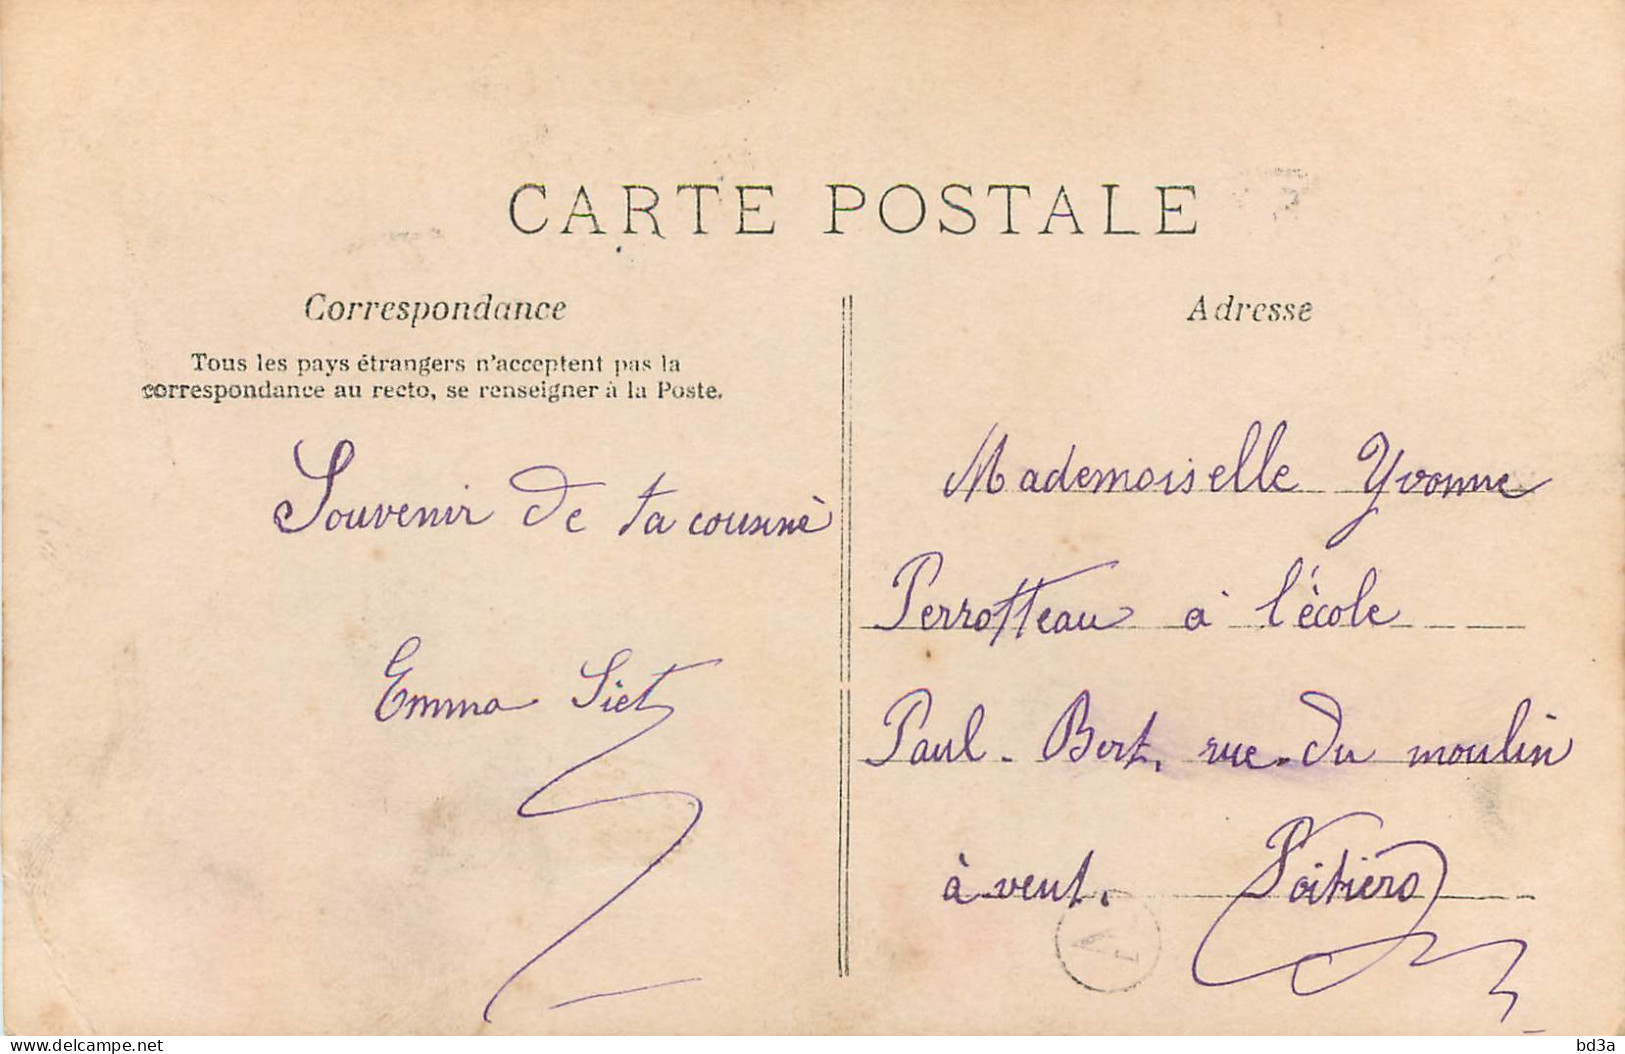 CARTE POSTALE
Correspondance
Tous les pays étrangers n'acceptent pas la
correspondance au recto, se renseigner à la Poste.
Souvenir de ta cousine
Emma Siet
Adresse
Mademoiselle Yvonne
Perrotteau à l'école
Paul-Bert, rue du moulin
à vent. Poitiers
website-delcampe.net
bd3a